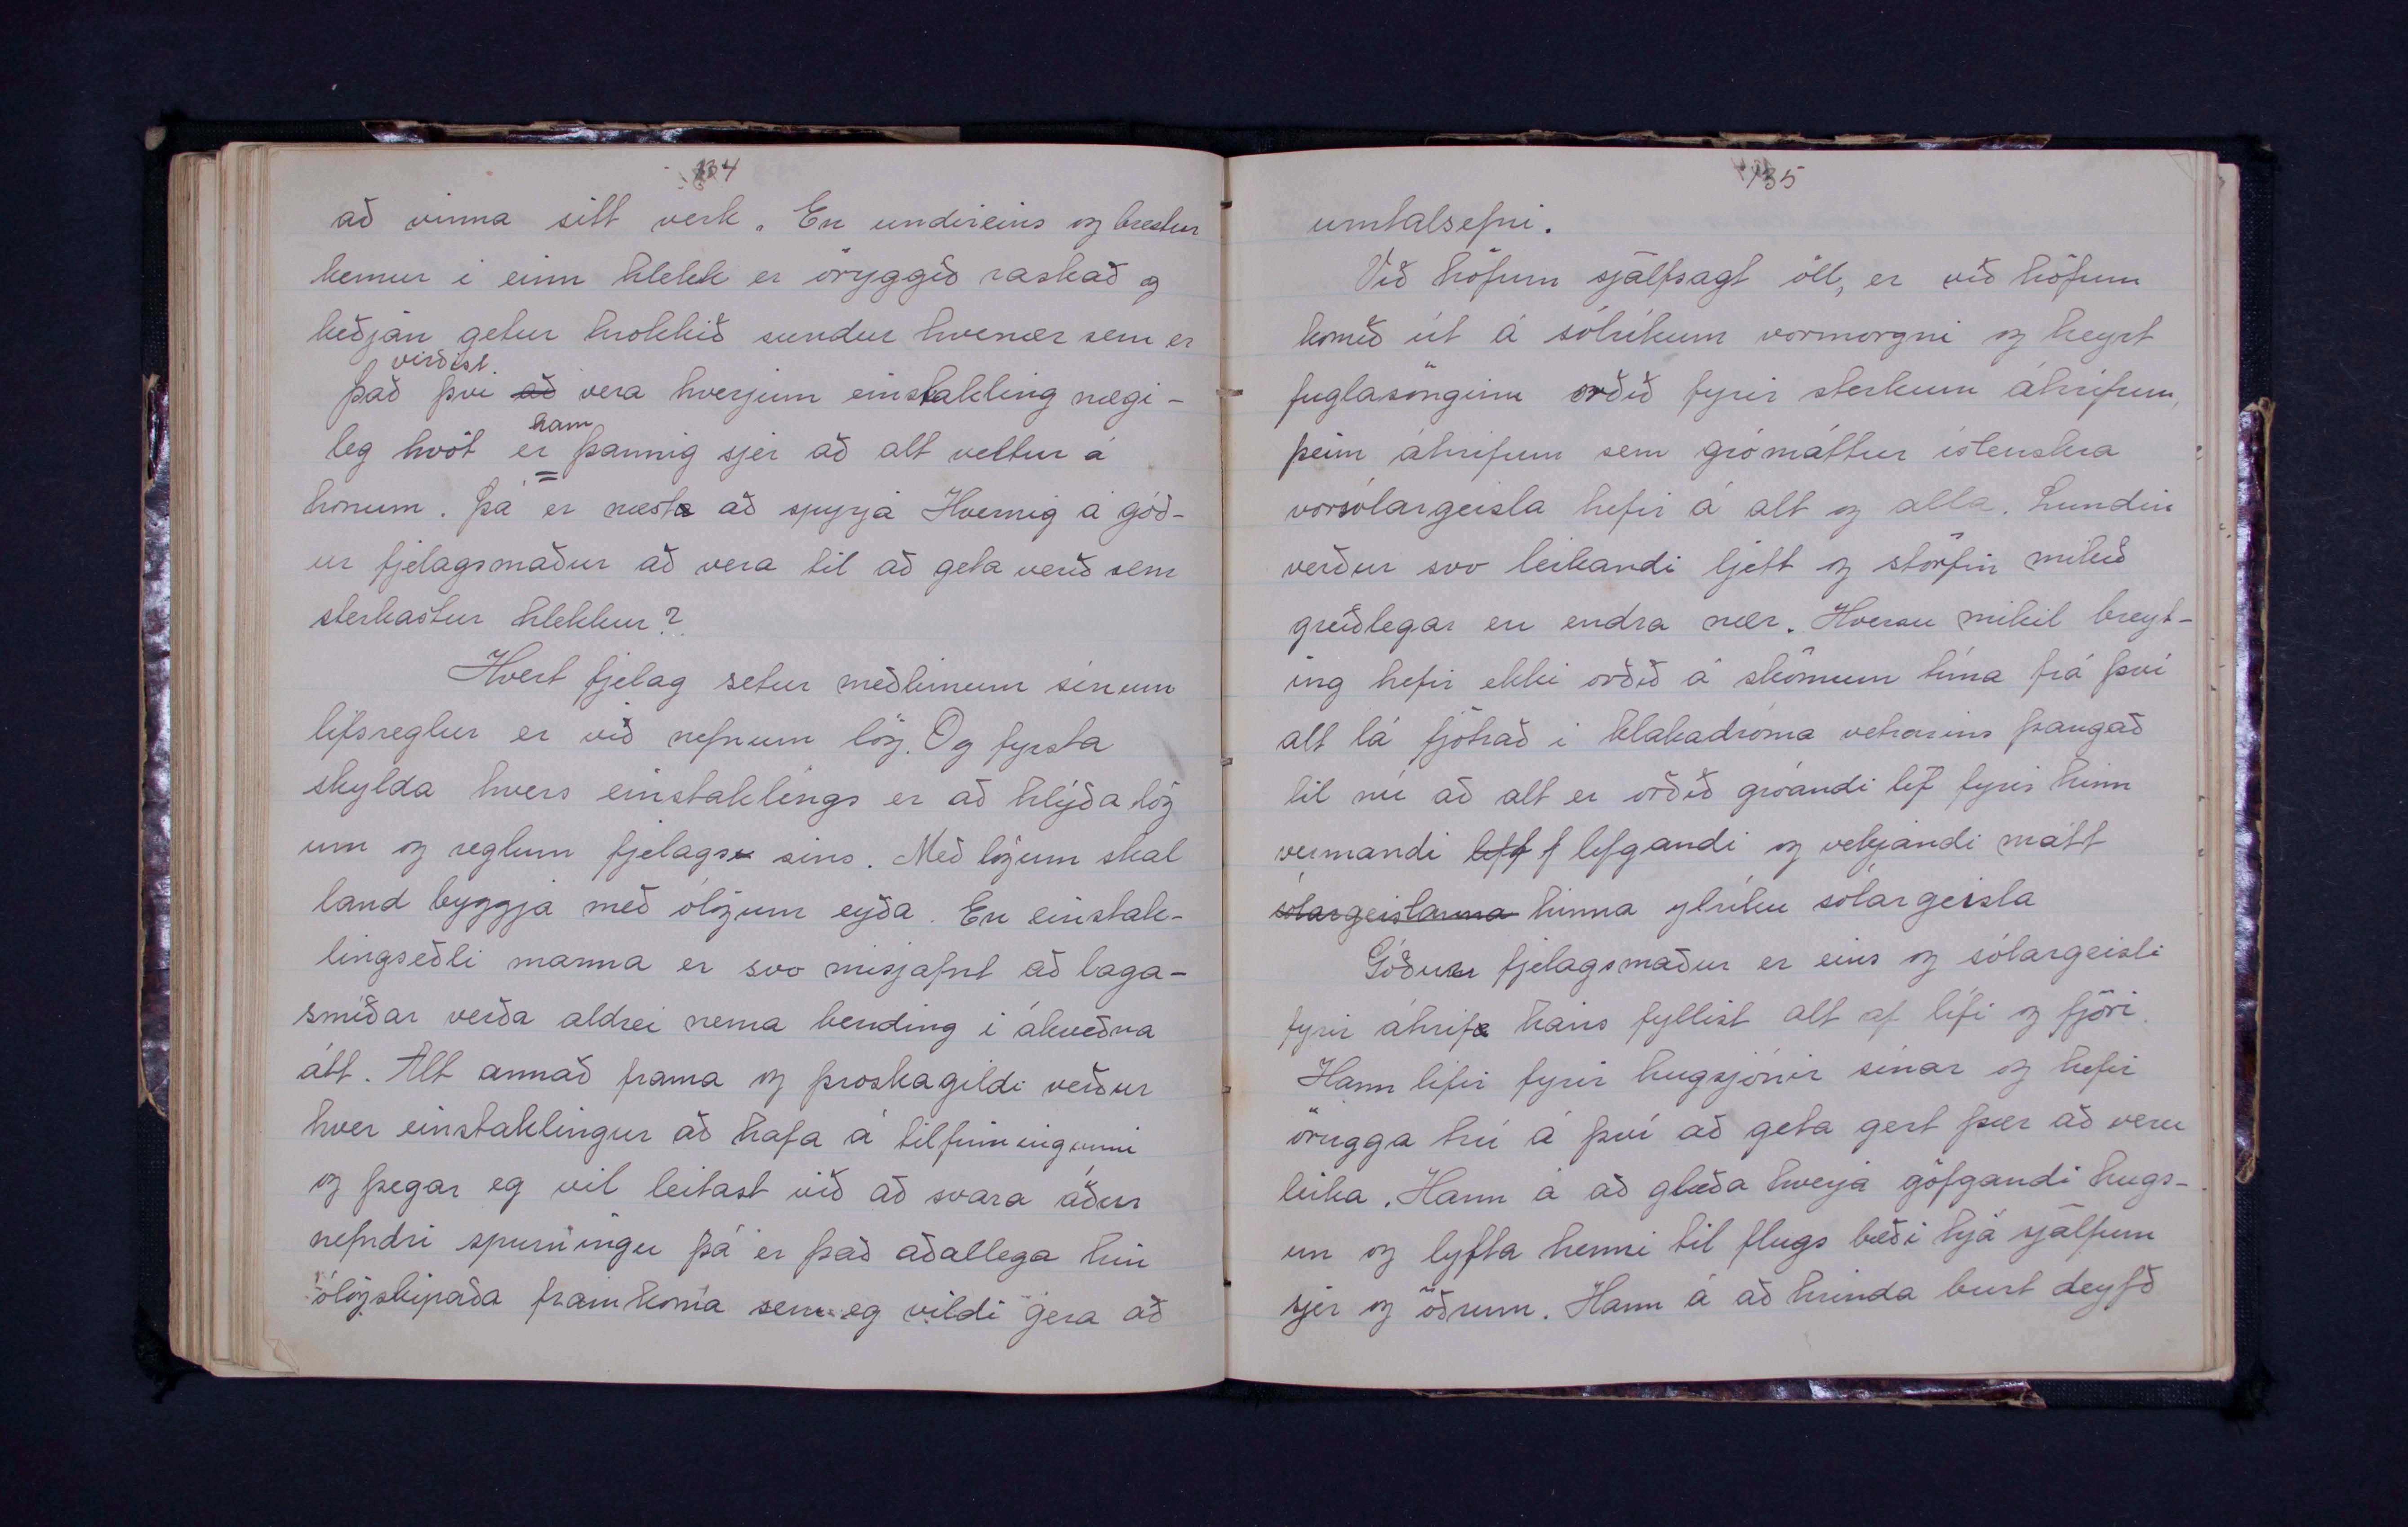 134
að vinna sitt verk. En undireins og brestur
kemur í einn hlekk er öryggið raskað og
keðjan getur hrokkið sundur hvenær sem er
virðist
það því að vera hverjum einstakling nægi-
hann
leg hvöt er þannig sjer að alt veltur á
honum. Þá er næsta að spyrja Hvernig á góð-
ur fjelagsmaður að vera til að geta verið sem
sterkastur hlekkur?
Hvert fjelag setur meðlimum sínum
lífsreglur er við nefnum lög. Og fyrsta
skylda hvers einstaklings er að hlýða lög
um og reglum fjelags sins. Með lögum skal
land byggja með ólögum eyða. En einstak-
lingseðli manna er svo misjafnt að laga-
smíðar verða aldrei nema bending í ákveðna
átt. Alt annað frama og þroskagildi verður
hver einstaklingur að hafa á tilfinningunni
og þegar eg vil leitast við að svara áður
nefndri spurningu þá er það aðallega hin
ólögskipaða framkoma sem eg vildi gera að
135
umtalsefni.
Við höfum sjálfsagt öll, er við höfum
komið út á sólríkum vormorgni og heyrt
fuglasönginn orðið fyrir sterkum áhrifum,
þeim áhrifum sem grómáttur íslenskra
vorsólargeisla hefir á alt og alla. Lundin
verður svo leikandi ljett og störfin mikið
greiðlegar en endra nær. Hversu mikil breyt-
ing hefir ekki orðið á skömmum tíma frá því
alt lá fjötrað í klakadróma vetrarins þangað
til nú að alt er orðið gróandi líf fyrir hinn
vermandi lífg f lífgandi og vekjandi mátt
sólargeislanna hinna ylríku sólargeisla
Góður fjelagsmaður er eins og sólargeisli
fyrir áhrif hans fyllist alt af lífi og fjöri.
Hann lifir fyrir hugsjónir sínar og hefir
örugga trú á því að geta gert þær að veru
leika. Hann á að glæða hverja göfgandi hugs-
un og lyfta henni til flugs bæði hjá sjálfum
sjer og öðrum. Hann á að hrinda burt deyfð